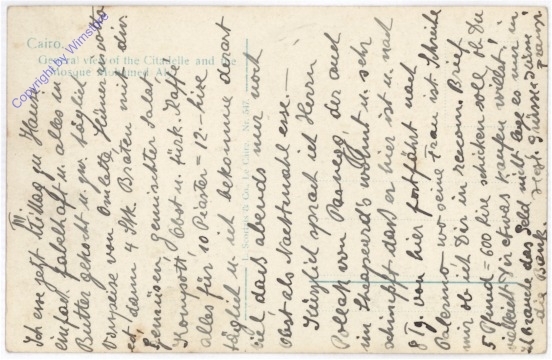 Cairo.
General view of the Citadelle and the
Mosque Mohamed Ali
Copyright by Wimsting
L. Scortzis & Co., Le Caire. Nr. 517.
Ich esse jetzt Mittag zu Hause
einfach fabelhaft u. alles in
Butter gekocht u. zw. täglich
Vorspeise von Omlette,
od. dann 4 Stk. Braten mit div.
Gemüsen, Gemischter Salat,
Kompott, Obst u. türk. Kaffe
alles für 10 Piaster = 12.- lire
täglich u. ich bekomme derart
viel daß abends nur noch
Obst als Nachtmahl esse. —
Kürzlich sprach ich Herrn
Pollak von der auch
im Sheapeard's wohnt u. sehr
schimpft daß er hier ist u. nach
8 Tg. von hier fortfährt nach
Palermo wo seine Frau ist. Schreibe
mir ob ich Dir in recom. Brief
5 Pfund = 600 lire schicken soll, ob Du
vielleicht Dir etwas kaufen willst!
ich brauche das Geld nicht lege es nur in
die Bank
Franz